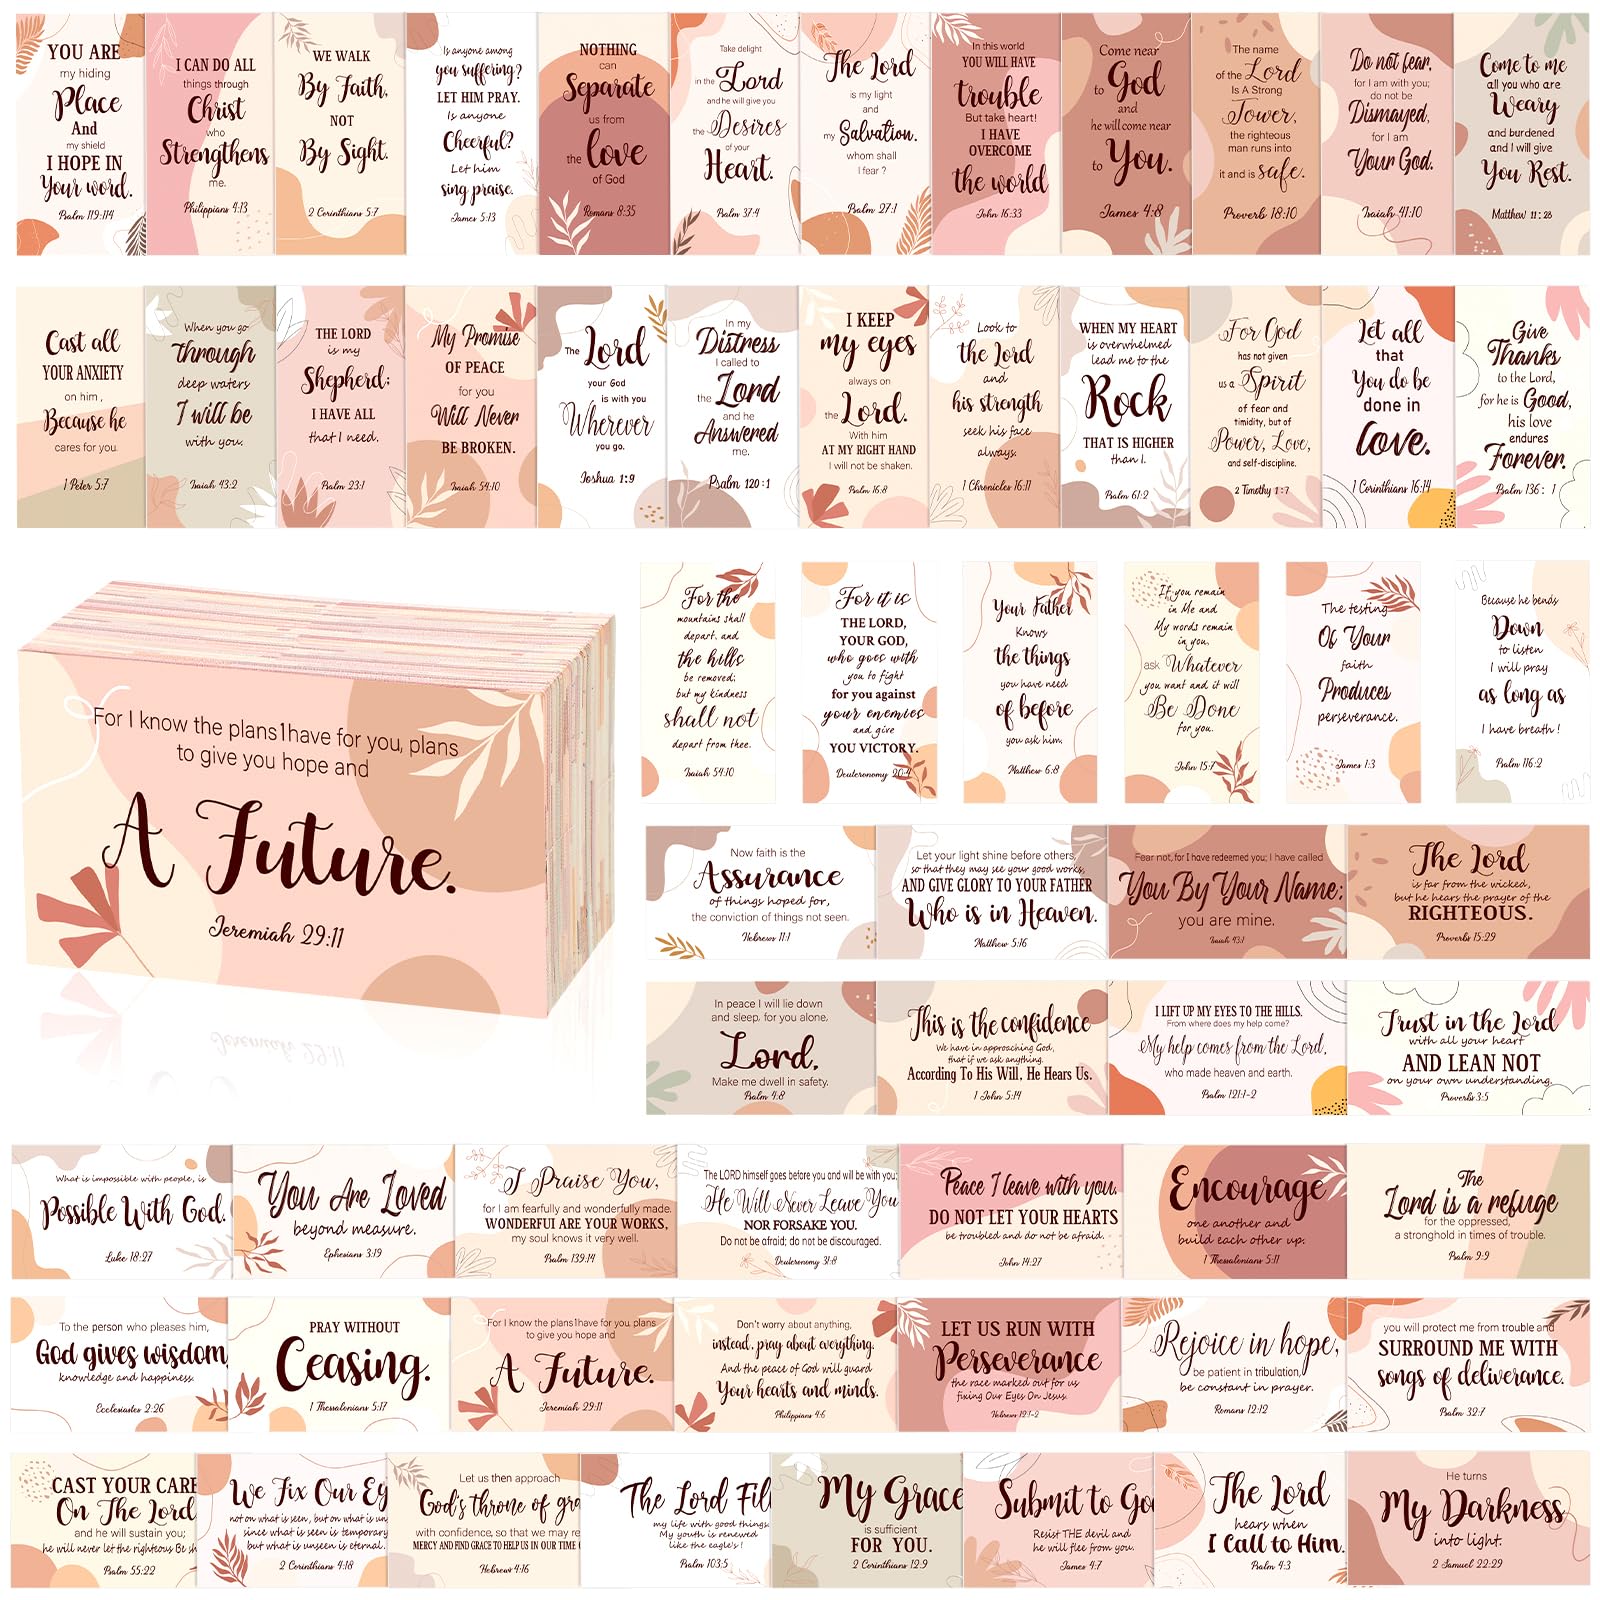 YOU ARE
my hiding
Place
And
my shield
I HOPE IN
Your word.
Psalm 119:114
I CAN DO ALL
things through
Christ
who
Strengthens
me.
Philippians 4:13
WE WALK
By Faith,
NOT
By Sight.
2 Corinthians 5:7
Is anyone among
you suffering?
LET HIM PRAY.
Is anyone
Cheerful?
Let him
sing praise.
James 5:13
NOTHING
can
Separate
us from
the love
of God
Romans 8:35
Take delight
in the Lord
and he will give you
the Desires
of your
Heart.
Psalm 37:4
The Lord
is my light
and
my Salvation.
whom shall
I fear ?
Psalm 27:1
In this world
YOU WILL HAVE
trouble
But take heart!
I HAVE
OVERCOME
the world
John 16:33
Come near
to God
and
he will come near
to You.
James 4:8
The name
of the Lord
Is A Strong
Tower,
the righteous
man runs into
it and is safe.
Proverb 18:10
Do not fear,
for I am with you;
do not be
Dismayed,
for I am
Your God.
Isaiah 41:10
Come to me
all you who are
Weary
and burdened
and I will give
You Rest.
Matthew 11:28
Cast all
YOUR ANXIETY
on him ,
Because he
cares for you.
1 Peter 5:7
When you go
through
deep waters
I will be
with you.
Isaiah 43:2
THE LORD
is my
Shepherd;
I HAVE ALL
that I need.
Psalm 23:1
My Promise
OF PEACE
for you
Will Never
BE BROKEN.
Isaiah 54:10
The Lord
your God
is with you
Wherever
you go.
Joshua 1:9
In my
Distress
I called to
the Lord
and he
Answered
me.
Psalm 120:1
I KEEP
my eyes
always on
the Lord.
With him
AT MY RIGHT HAND
I will not be shaken.
Psalm 16:8
Look to
the Lord
and
his strength
seek his face
always.
1 Chronicles 16:11
WHEN MY HEART
is overwhelmed
lead me to the
Rock
THAT IS HIGHER
than I.
Psalm 61:2
For God
has not given
us a Spirit
of fear and
timidity, but of
Power, Love,
and self-discipline.
2 Timothy 1:7
Let all
that
You do be
done in
love.
1 Corinthians 16:14
Give
Thanks
to the Lord,
for he is Good,
his love
endures
Forever.
Psalm 136: 1
For I know the plans1have for you, plans
to give you hope and
A Future.
Jeremiah 29:11
For the
mountains shall
depart, and
the hills
be removed;
but my kindness
shall not
depart from thee.
Isaiah 54:10
For it is
THE LORD,
YOUR GOD,
who goes with
you to fight
for you against
your enemies
and give
YOU VICTORY.
Deuteronomy 20:4
Your Father
Knows
the things
you have need
of before
you ask him.
Matthew 6:8
If you remain
in Me and
My words remain
in you,
ask Whatever
you want and it will
Be Done
for you.
John 15:7
The testing
Of Your
faith
Produces
perseverance.
James 1:3
Because he bends
Down
to listen
I will pray
as long as
I have breath !
Psalm 116:2
Now faith is the
Assurance
of things hoped for,
the conviction of things not seen.
Hebrews 11:1
Let your light shine before others,
so that they may see your good works,
AND GIVE GLORY TO YOUR FATHER
Who is in Heaven.
Matthew 5:16
Fear not, for I have redeemed you; I have called
You By Your Name;
you are mine.
Isaiah 43:1
The Lord
is far from the wicked,
but he hears the prayer of the
RIGHTEOUS.
Proverbs 15:29
In peace I will lie down
and sleep, for you alone,
Lord,
Make me dwell in safety.
Psalm 4:8
This is the confidence
We have in approaching God,
that if we ask anything.
According To His Will, He Hears Us.
1 John 5:14
I LIFT UP MY EYES TO THE HILLS.
From where does my help come?
My help comes from the Lord,
who made heaven and earth.
Psalm 121:1-2
Trust in the Lord
with all your heart
AND LEAN NOT
on your own understanding.
Proverbs 3:5
What is impossible with people, is
Possible With God.
Luke 18:27
You Are Loved
beyond measure.
Ephesians 3:19
I Praise You,
for I am fearfully and wonderfully made.
WONDERFUL ARE YOUR WORKS,
my soul knows it very well.
Psalm 139:14
The LORD himself goes before you and will be with you;
He Will Never Leave You
NOR FORSAKE YOU.
Do not be afraid; do not be discouraged.
Deuteronomy 31:8
Peace I leave with you.
DO NOT LET YOUR HEARTS
be troubled and do not be afraid.
John 14:27
Encourage
one another and
build each other up.
1 Thessalonians 5:11
The
Lord is a refuge
for the oppressed,
a stronghold in times of trouble.
Psalm 9:9
To the person who pleases him,
God gives wisdom,
knowledge and happiness.
Ecclesiastes 2:26
PRAY WITHOUT
Ceasing.
1 Thessalonians 5:17
For I know the plans1have for you, plans
to give you hope and
A Future.
Jeremiah 29:11
Don't worry about anything,
instead, pray about everything.
And the peace of God will guard
Your hearts and minds.
Philippians 4:6
LET US RUN WITH
Perseverance
the race marked out for us
fixing Our Eyes On Jesus.
Hebrews 12:1-2
Rejoice in hope,
be patient in tribulation,
be constant in prayer.
Romans 12:12
you will protect me from trouble and
SURROUND ME WITH
songs of deliverance.
Psalm 32:7
CAST YOUR CARE
On The Lord
and he will sustain you;
he will never let the righteous Be sh
Psalm 55:22
We Fix Our Ey
not on what is seen, but on what is un
since what is seen is temporary
but what is unseen is eternal.
2 Corinthians 4:18
Let us then approach
God's throne of gra
with confidence, so that we may re
MERCY AND FIND GRACE TO HELP US IN OUR TIME
Hebrews 4:16
The Lord Fill
my life with good things.
My youth is renewed
like the eagle's !
Psalm 103:5
My Grace
is sufficient
FOR YOU.
2 Corinthians 12:9
Submit to Go
Resist THE devil and
he will flee from you.
James 4:7
The Lord
hears when
I Call to Him.
Psalm 4:3
He turns
My Darkness
into light.
2 Samuel 22:29